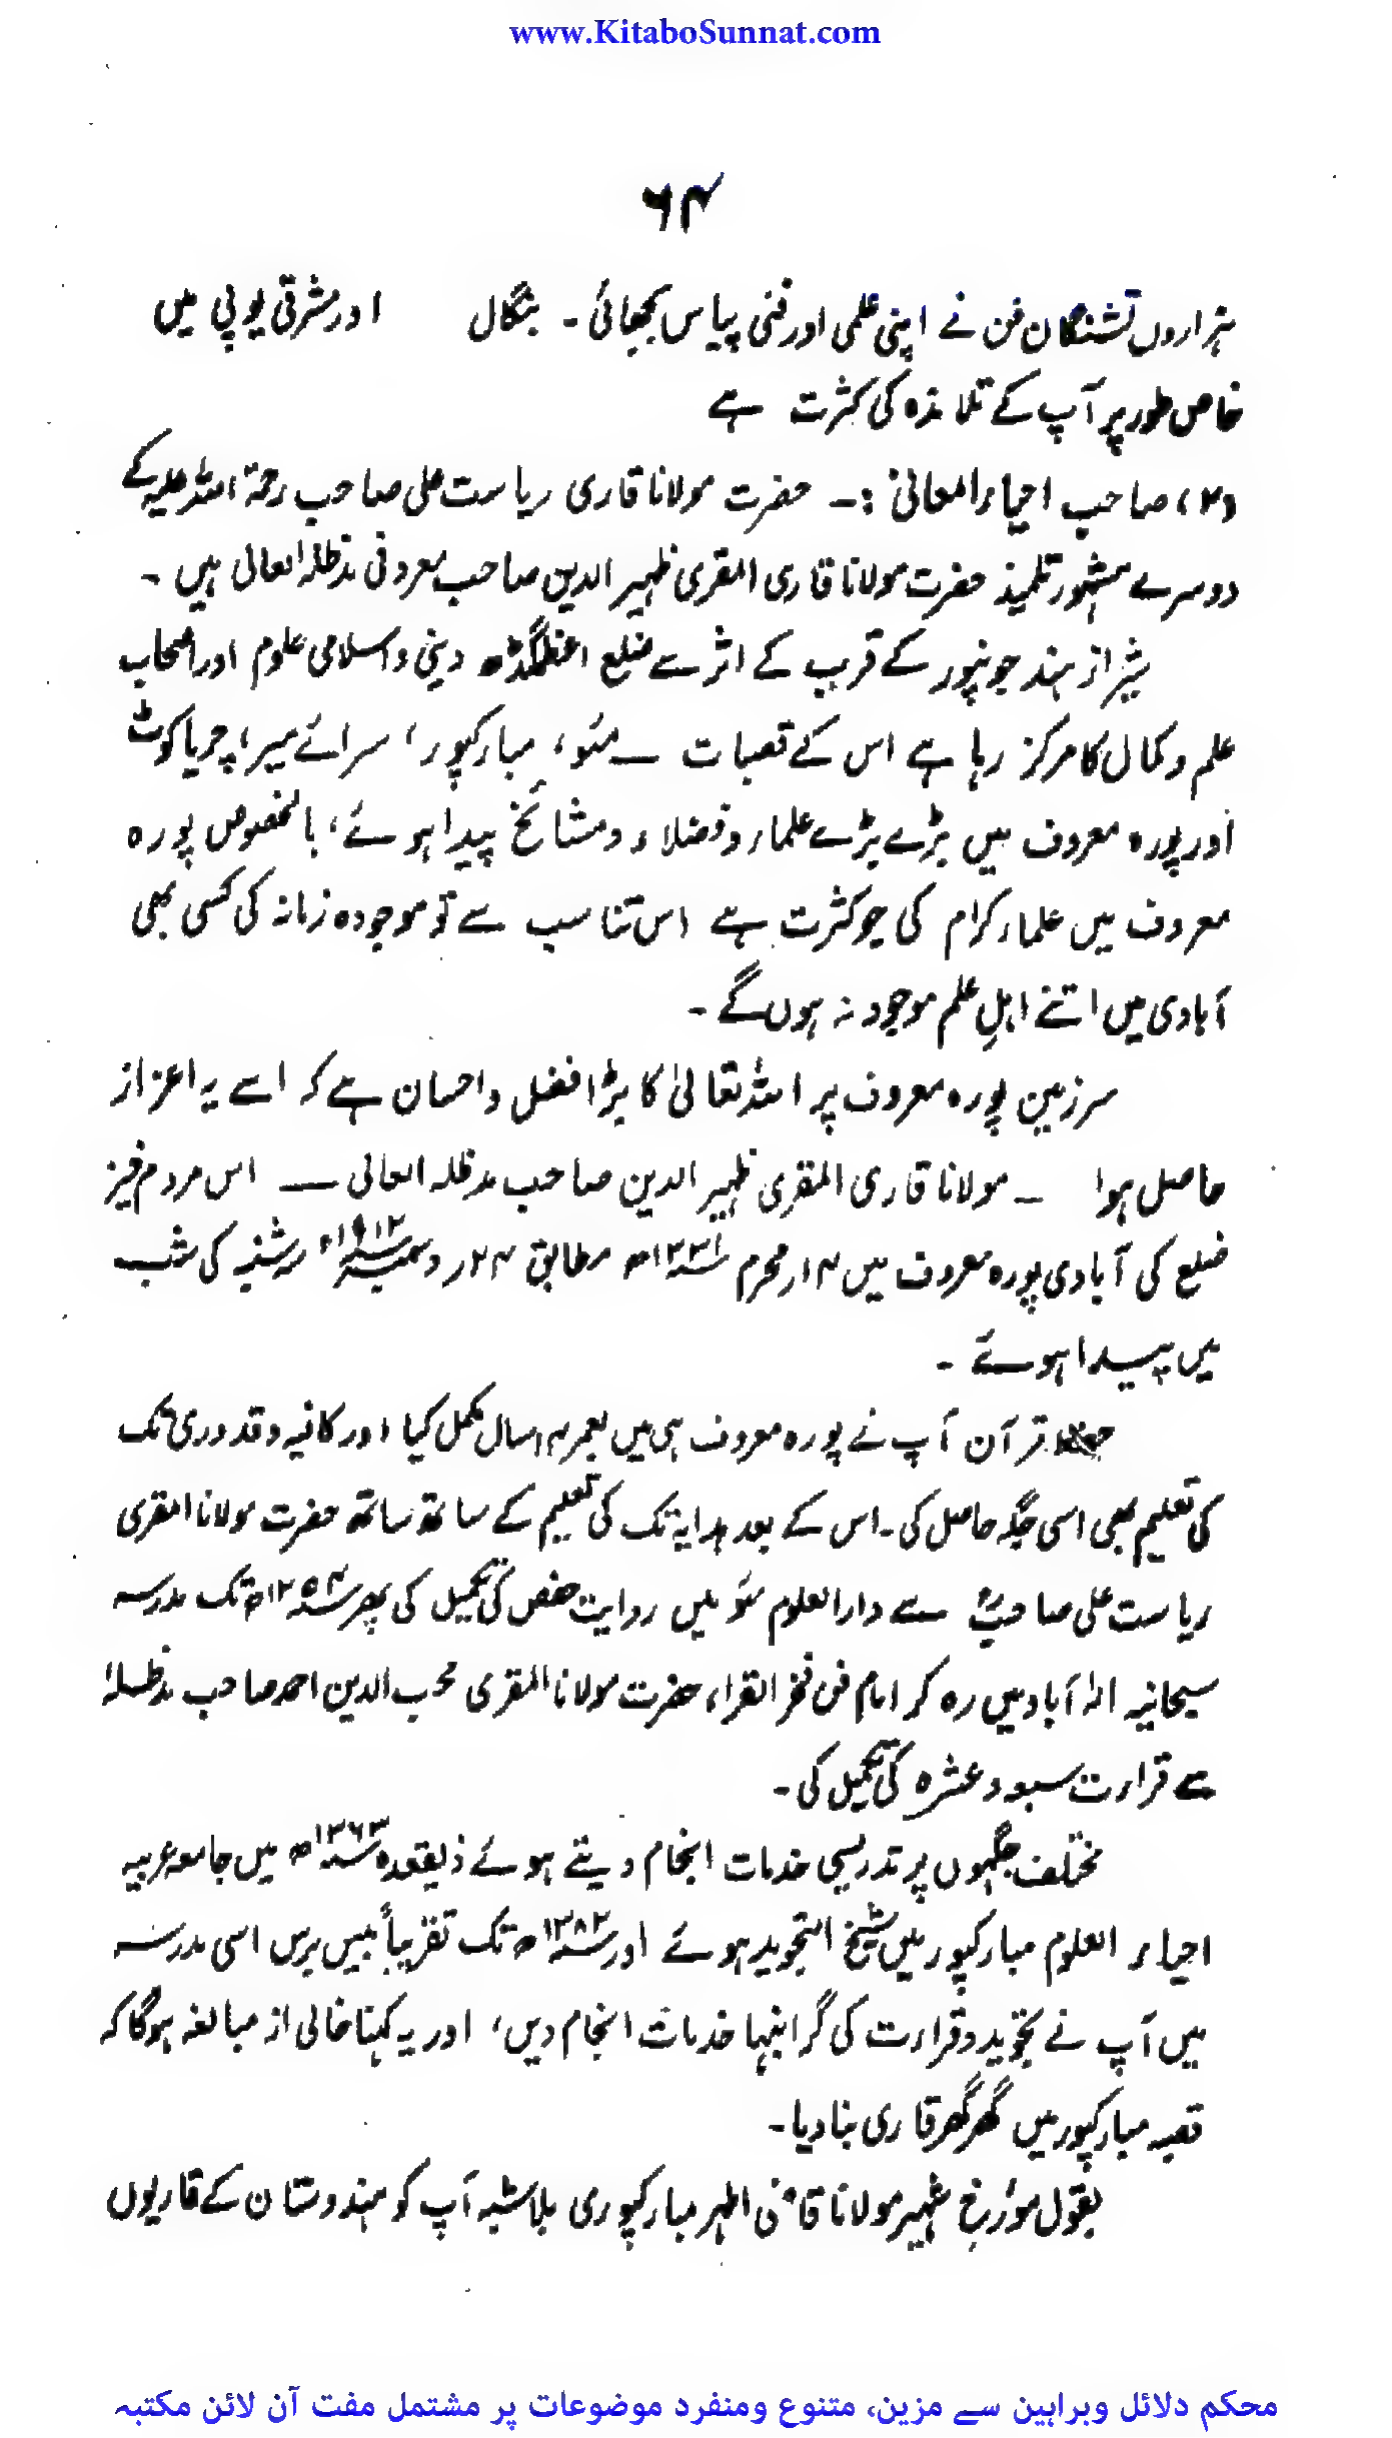 www.KitaboSunnat.com
۶۴
ہزاروں تشنگان فن نے اپنی علمی اور فنی پیاس بجھائی ۔ بنگال اور مشرقی یوپی میں
خاص طور پر آپ کے تلامذہ کی کثرت ہے
(۲) صاحب احیاء المعانی :۔ حضرت مولانا قاری ریاست علی صاحب رحمۃ اللہ علیہ کے
دوسرے مشہور تلمیذ حضرت مولانا قاری المقری ظہیر الدین صاحب معروفی مدظلہ العالی ہیں ۔
شیراز ہند جونپور کے قرب کے اثر سے ضلع اعظمگڈھ دینی و اسلامی علوم اور اصحاب
علم و کمال کا مرکز رہا ہے اس کے قصبات ــ مئو، مبارکپور، سرائے میر، چریا کوٹ
اور پورہ معروف میں بڑے بڑے علماء و فضلاء و مشائخ پیدا ہوئے، بالخصوص پورہ
معروف میں علماء کرام کی جو کثرت ہے اس تناسب سے تو موجودہ زمانہ کی کسی بھی
آبادی میں اتنے اہلِ علم موجود نہ ہوں گے ۔
سرزمین پورہ معروف پر اللہ تعالیٰ کا بڑا فضل و احسان ہے کہ اسے یہ اعزاز
حاصل ہوا ــ مولانا قاری المقری ظہیر الدین صاحب مدظلہ العالی ــ اس مردم خیز
ضلع کی آبادی پورہ معروف میں ۱۴؍ محرم ۱۳۳۱ھ مطابق ۲۴؍ دسمبر ۱۹۱۲ء سہ شنبہ کی شب
میں پیدا ہوئے ۔
قرآن آپ نے پورہ معروف ہی میں بعمر ۱۴ سال مکمل کیا اور کافیہ و قدوری تک
کی تعلیم بھی اسی جگہ حاصل کی ۔ اس کے بعد ہدایہ تک کی تعلیم کے ساتھ ساتھ حضرت مولانا المقری
ریاست علی صاحبؒ سے دارالعلوم مئو میں روایت حفص کی تکمیل کی پھر ۱۳۵۴ھ تک مدرسہ
سبحانیہ الہٰ آباد میں رہ کر امام فن فخر القراء حضرت مولانا المقری محب الدین احمد صاحب مدظلہٗ
سے قرارت سبعہ و عشرہ کی تکمیل کی ۔
مختلف جگہوں پر تدریسی خدمات انجام دیتے ہوئے ذیقعدہ ۱۳۶۳ھ میں جامعہ عربیہ
احیاء العلوم مبارکپور میں شیخ التجوید ہوئے اور ۱۳۸۲ھ تک تقریباً بیس برس اسی مدرسہ
میں آپ نے تجوید و قراءت کی گرانبہا خدمات انجام دیں، اور یہ کہنا خالی از مبالغہ ہوگا کہ
قصبہ مبارکپور میں گھر گھر قاری بنا دیا ۔
بقول مؤرخ شہیر مولانا قاضی اطہر مبارکپوری بلاشبہ آپ کو ہندوستان کے قاریوں
محکم دلائل وبراہین سے مزین، متنوع ومنفرد موضوعات پر مشتمل مفت آن لائن مکتبہ